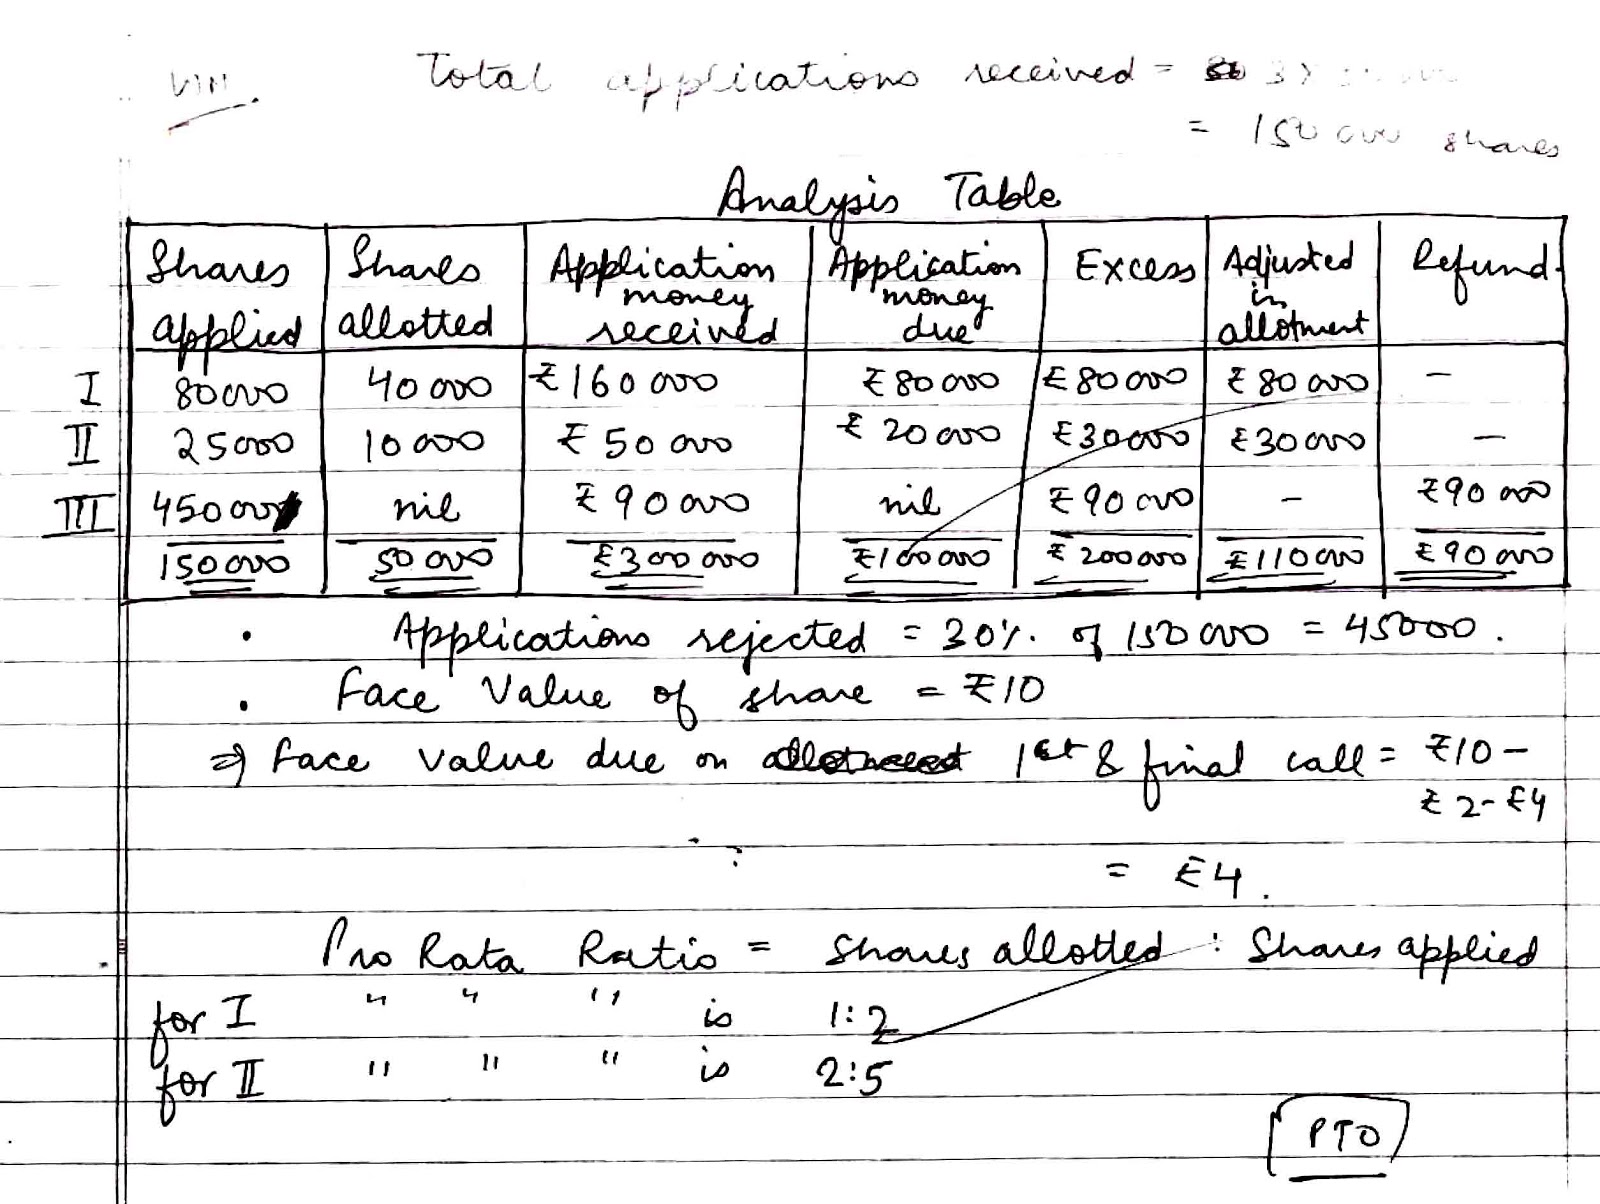 VIII. Total applications received = 3 x
= 150000 shares
Analysis Table
Shares applied | Shares allotted | Application money received | Application money due | Excess | Adjusted in allotment | Refund
I 80000 40000 ₹160000 ₹80000 ₹80000 ₹80000 -
II 25000 10000 ₹50000 ₹20000 ₹30000 ₹30000 -
III 45000 nil ₹90000 nil ₹90000 - ₹90000
150000 50000 ₹300000 ₹100000 ₹200000 ₹110000 ₹90000
• Applications rejected = 30% of 150000 = 45000.
• Face Value of share = ₹10
⇒ Face value due on 1st & final call = ₹10 -
₹2-₹4
= ₹4.
Pro Rata Ratio = Shares allotted : Shares applied
for I " " " is 1:2
for II " " " is 2:5
PTO